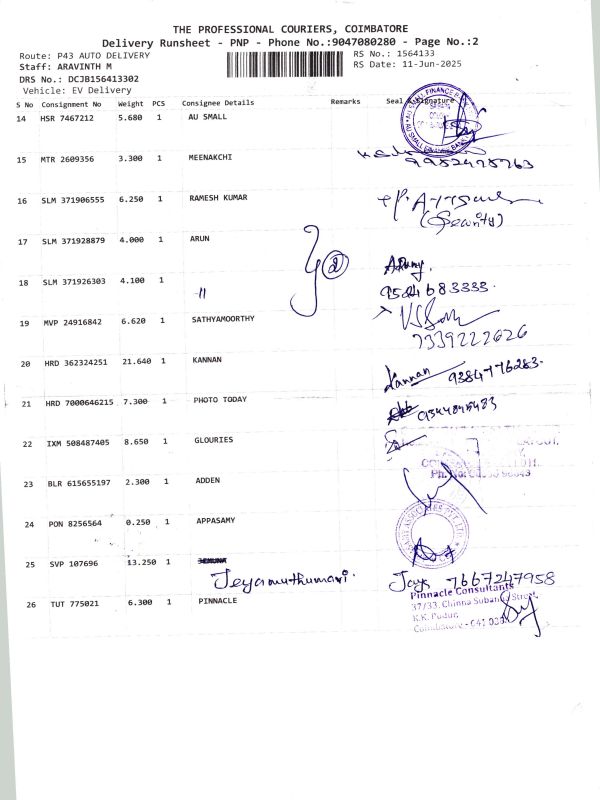 THE PROFESSIONAL COURIERS, COIMBATORE
Delivery Runsheet - PNP - Phone No.:9047080280 - Page No.:2
Route: P43 AUTO DELIVERY RS No.: 1564133
Staff: ARAVINTH M RS Date: 11-Jun-2025
DRS No.: DCJB156413302
Vehicle: EV Delivery
S No Consignment No Weight PCS Consignee Details Remarks Seal & Signature
14 HSR 7467212 5.680 1 AU SMALL
15 MTR 2609356 3.300 1 MEENAKCHI
9952495763
16 SLM 371906555 6.250 1 RAMESH KUMAR
(Security)
17 SLM 371928879 4.000 1 ARUN
2
18 SLM 371926303 4.100 1 -11 9524683333.
19 MVP 24916842 6.620 1 SATHYAMOORTHY
7339222626
20 HRD 362324251 21.640 1 KANNAN Kannan 9384776283.
21 HRD 7000646215 7.300 1 PHOTO TODAY
22 IXM 508487405 8.650 1 GLOURIES
23 BLR 615655197 2.300 1 ADDEN
24 PON 8256564 0.250 1 APPASAMY
25 SVP 107696 13.250 1
Jeyamuthumari. Jays 7667247958
26 TUT 775021 6.300 1 PINNACLE
Pinnacle Consultants
37/33, Chinna Subanna Street,
K.K. Pudur,
Coimbatore - 641 038.